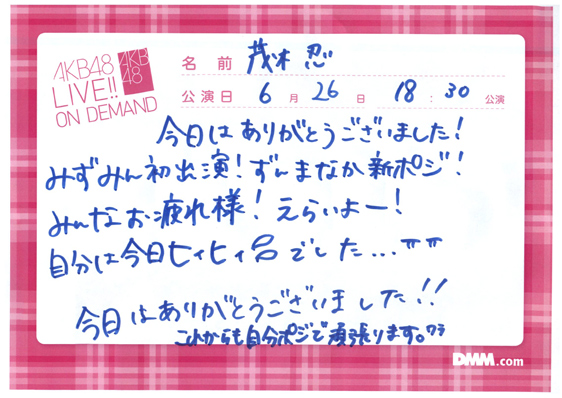 AKB48
LIVE!!
ON DEMAND
AKB
48
名前 茂木忍
公演日 6月26日 18:30公演
今日はありがとうございました!
みずみん初出演!ずんまなか新ポジ!
みんなお疲れ様!えらいよー!
自分は今日ヒィヒィ
でした...
今日はありがとうございました!!
これからも自分ポジで頑張ります。
DMM.com